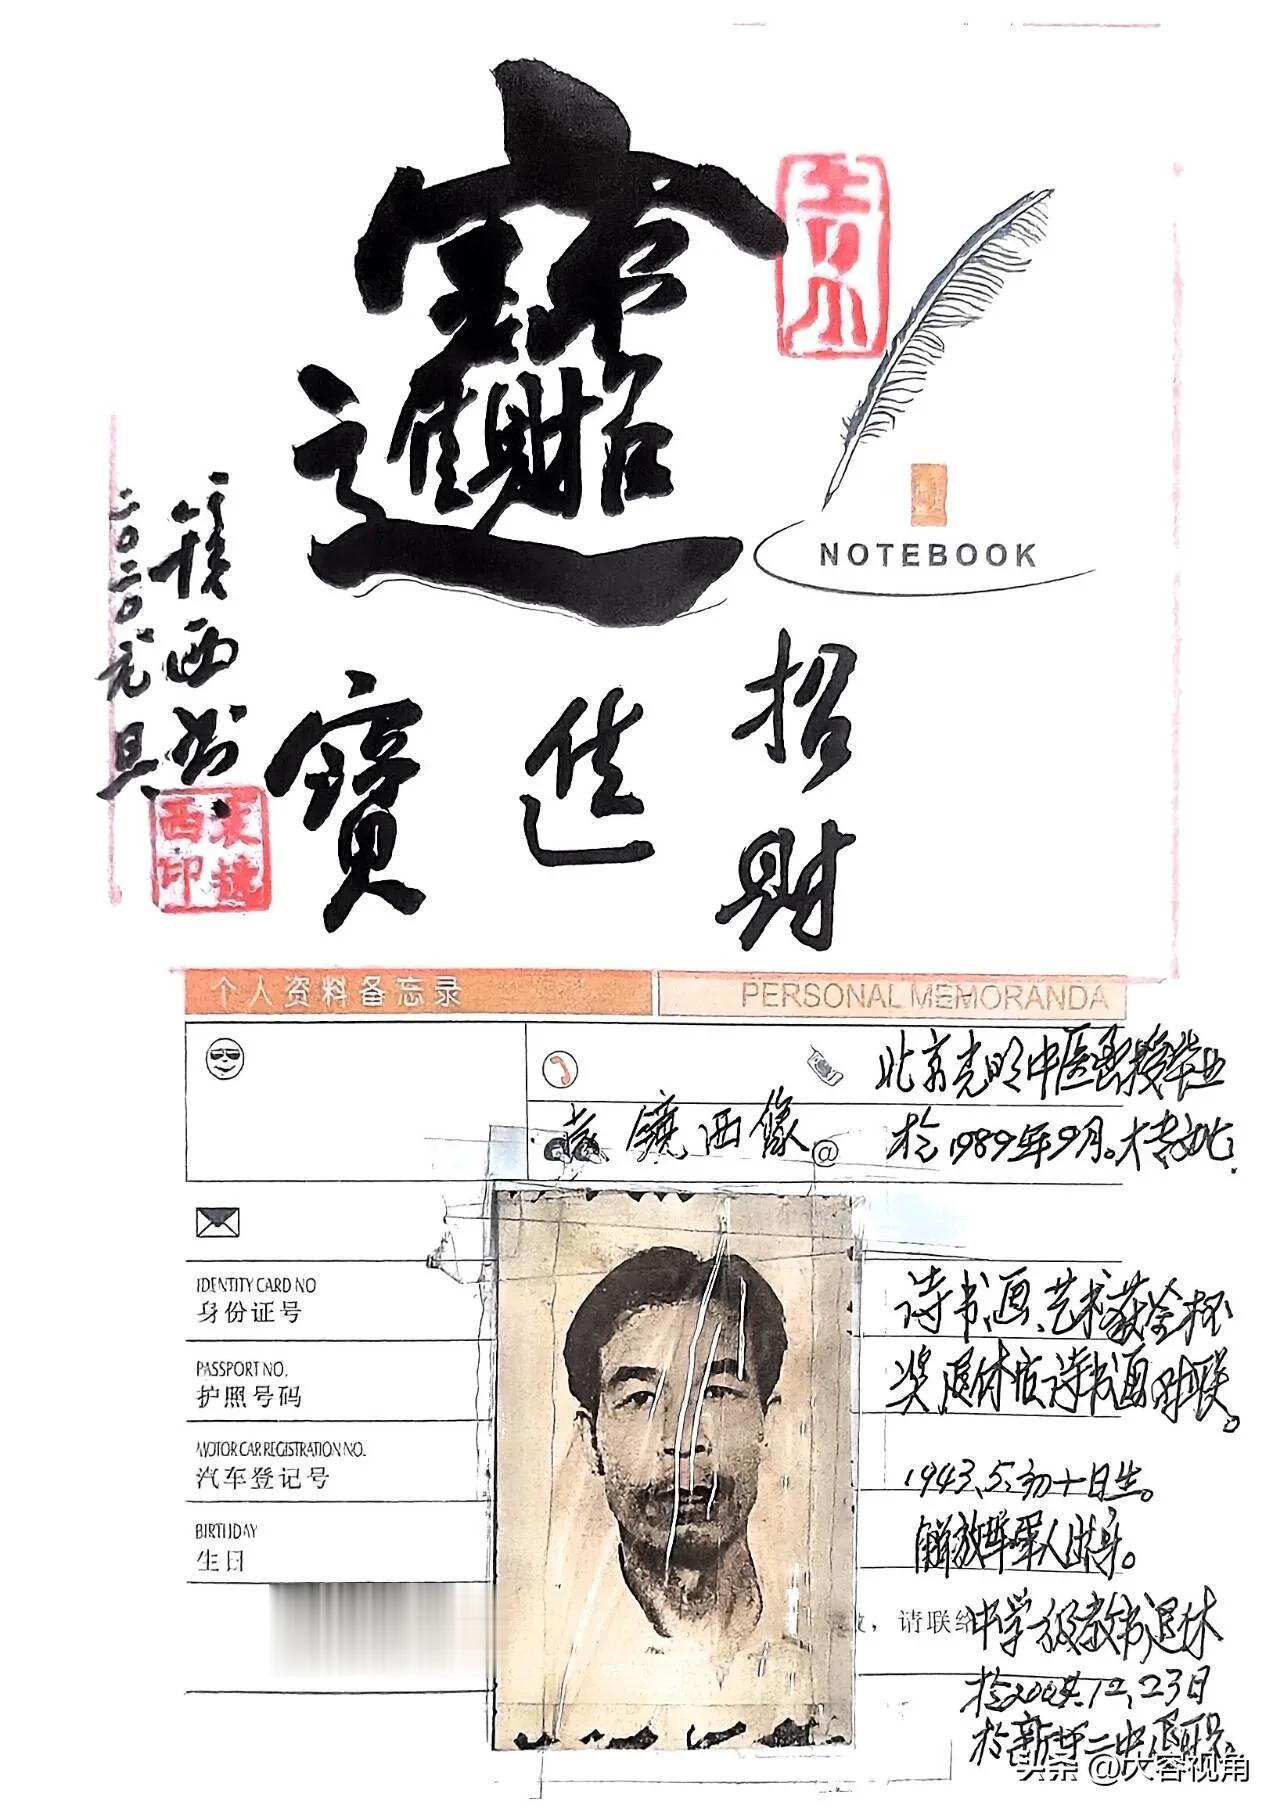 招財進寶
NOTEBOOK
招財
進
寶
二〇二〇元旦
鏡西书
个人资料备忘录
PERSONAL MEMORANDA
北京光明中医函授毕业
於1989年9月。大专文化.
袁镜西像
@
IDENTITY CARD NO
身份证号
PASSPORT NO.
护照号码
MOTOR CAR REGISTRATION NO.
汽车登记号
BIRTHDAY
生日
诗、书、画、艺术获金杯
奖退休后诗书画对联。
1943.5.初十日生。
解放军军人出身。
请联络
中学级教书退休
於2004.12.23日
於新 二中退职
头条 @大容视角